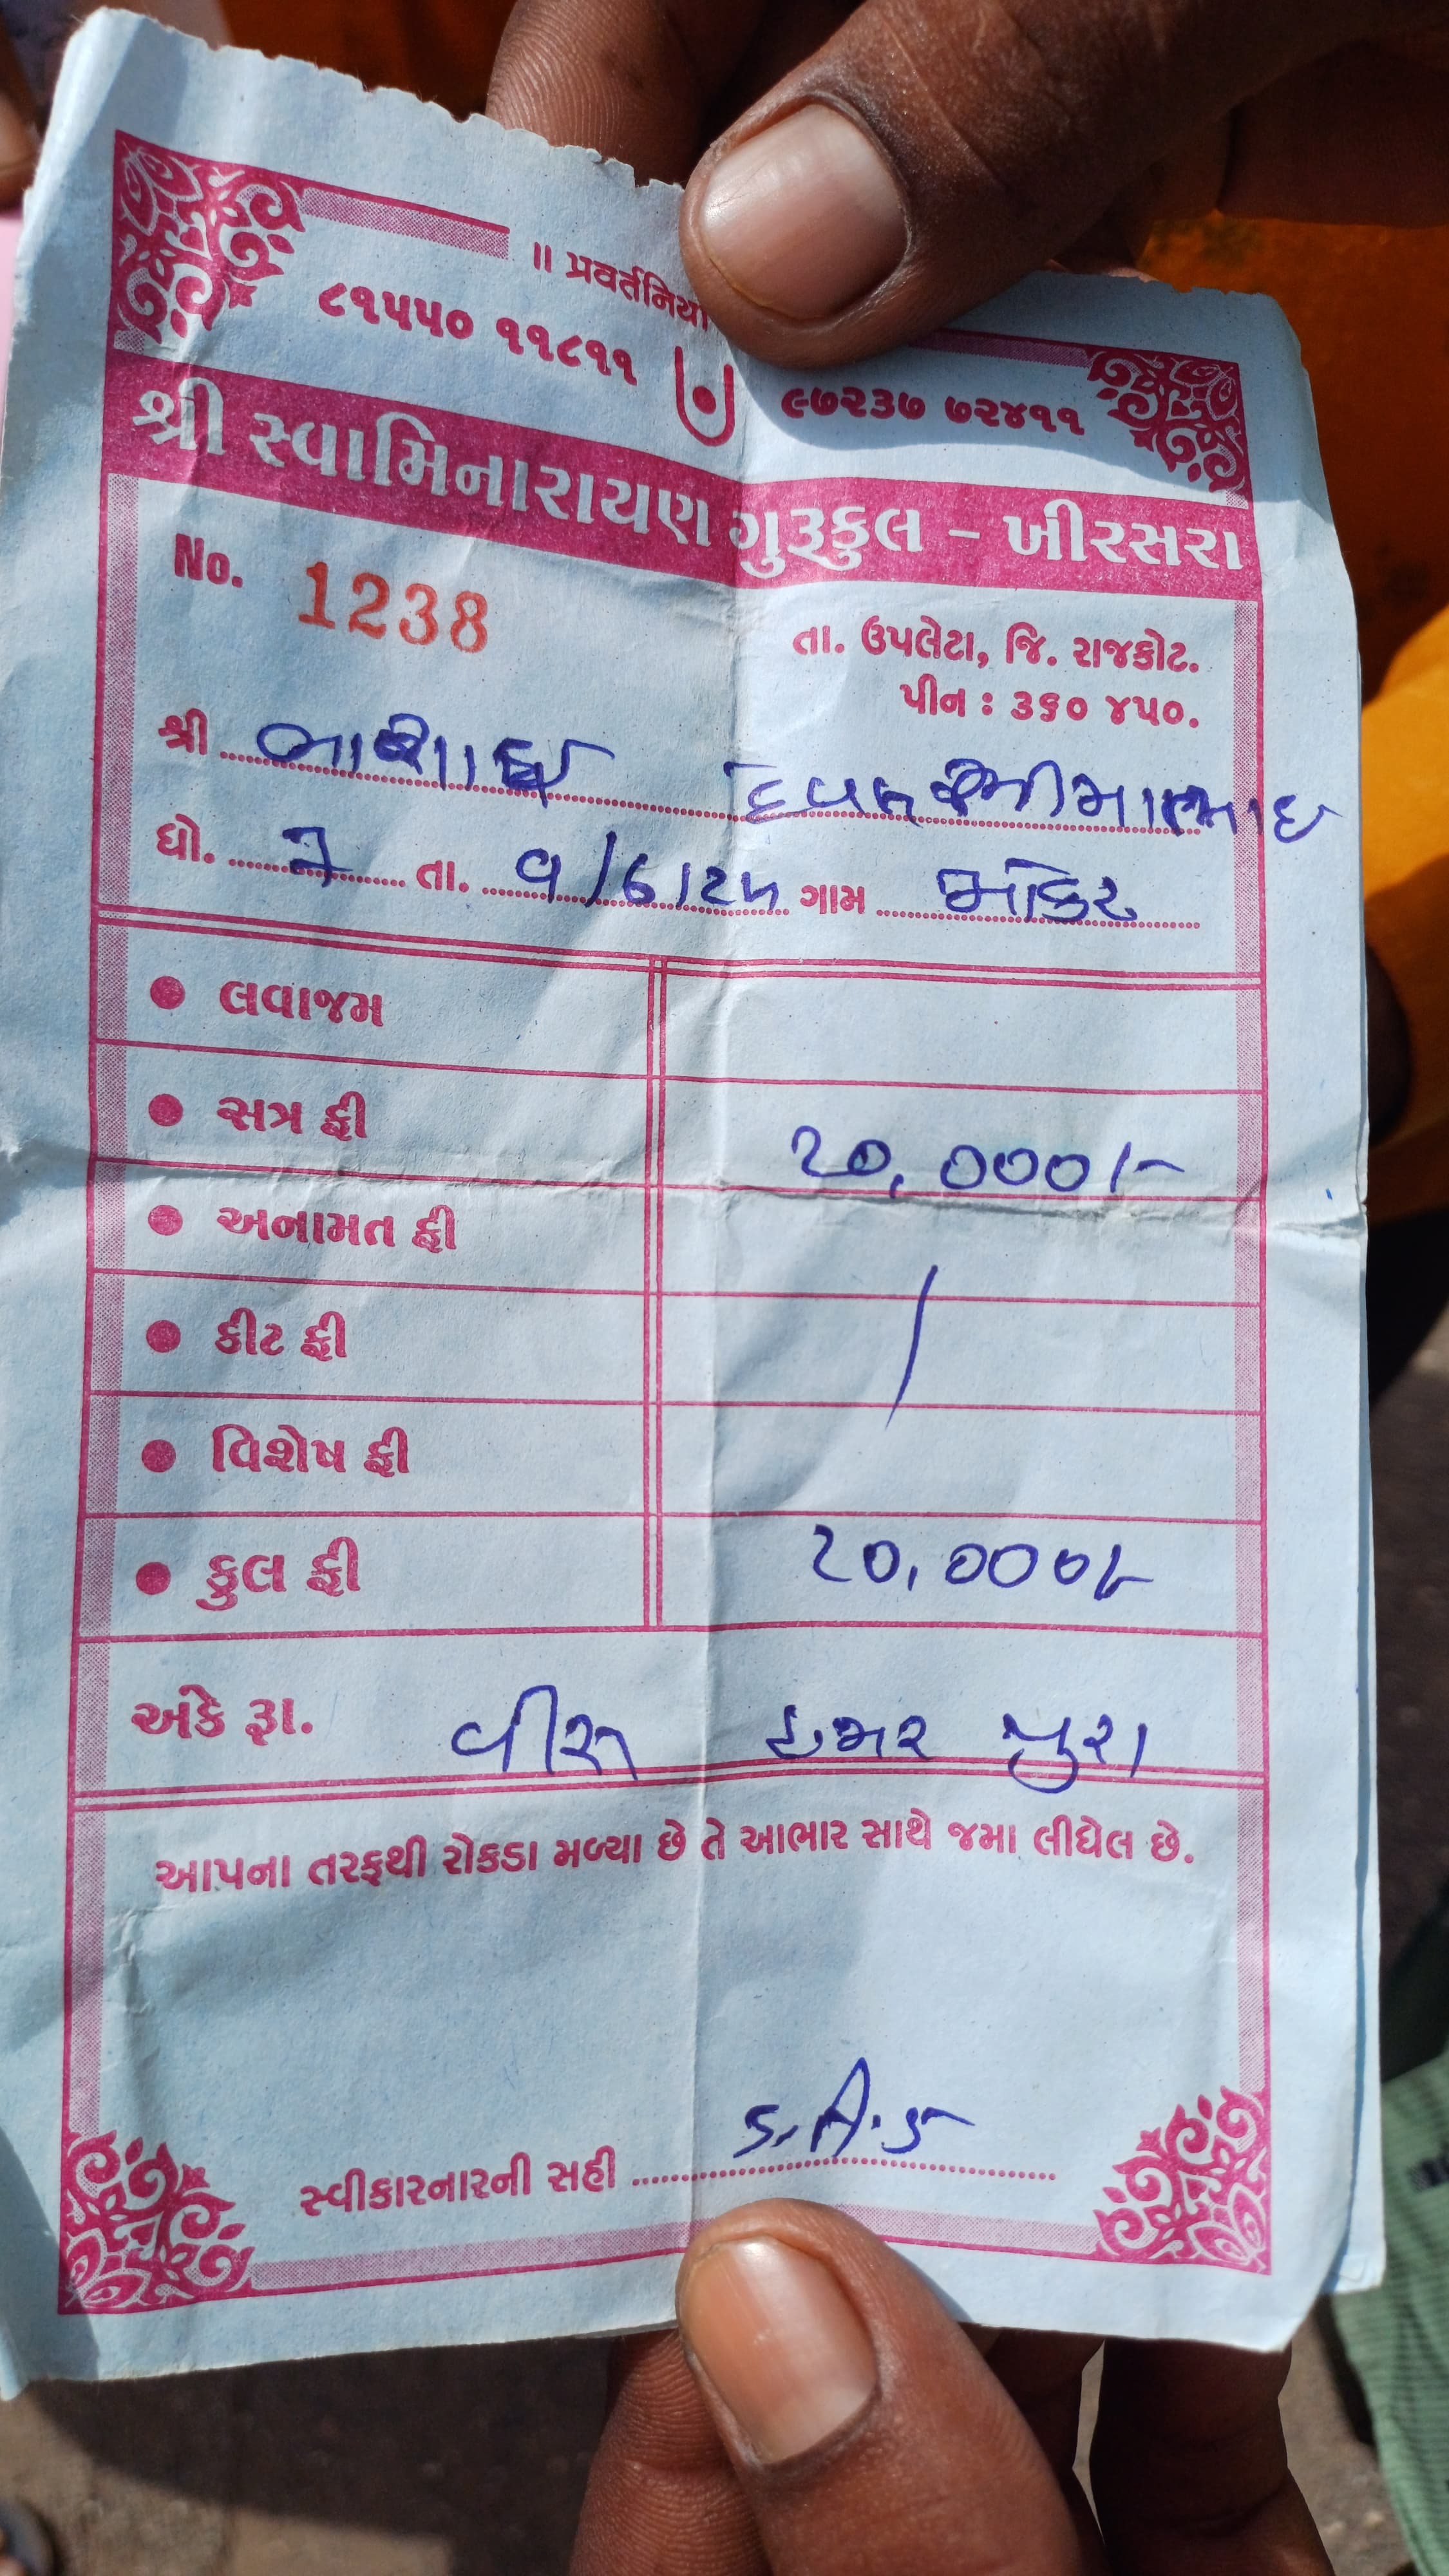 ॥ પ્રવર્તનિયા
૮૧૫૫૦ ૧૧૮૧૧ ૯૭૨૩૭ ૭૨૪૧૧
શ્રી સ્વામિનારાયણ ગુરૂકુલ - ખીરસરા
No. 1238
તા. ઉપલેટા, જિ. રાજકોટ.
પીન : ૩૬૦ ૪૫૦.
શ્રી
ધો. ૭ તા. ૧/૬/૨૫ ગામ
• લવાજમ
• સત્ર ફી ૨૦,૦૦૦/-
• અનામત ફી
• કીટ ફી
• વિશેષ ફી
• કુલ ફી ૨૦,૦૦૦/-
અંકે રૂા. વીસ હજાર પુરા
આપના તરફથી રોકડા મળ્યા છે તે આભાર સાથે જમા લીધેલ છે.
સ્વીકારનારની સહી